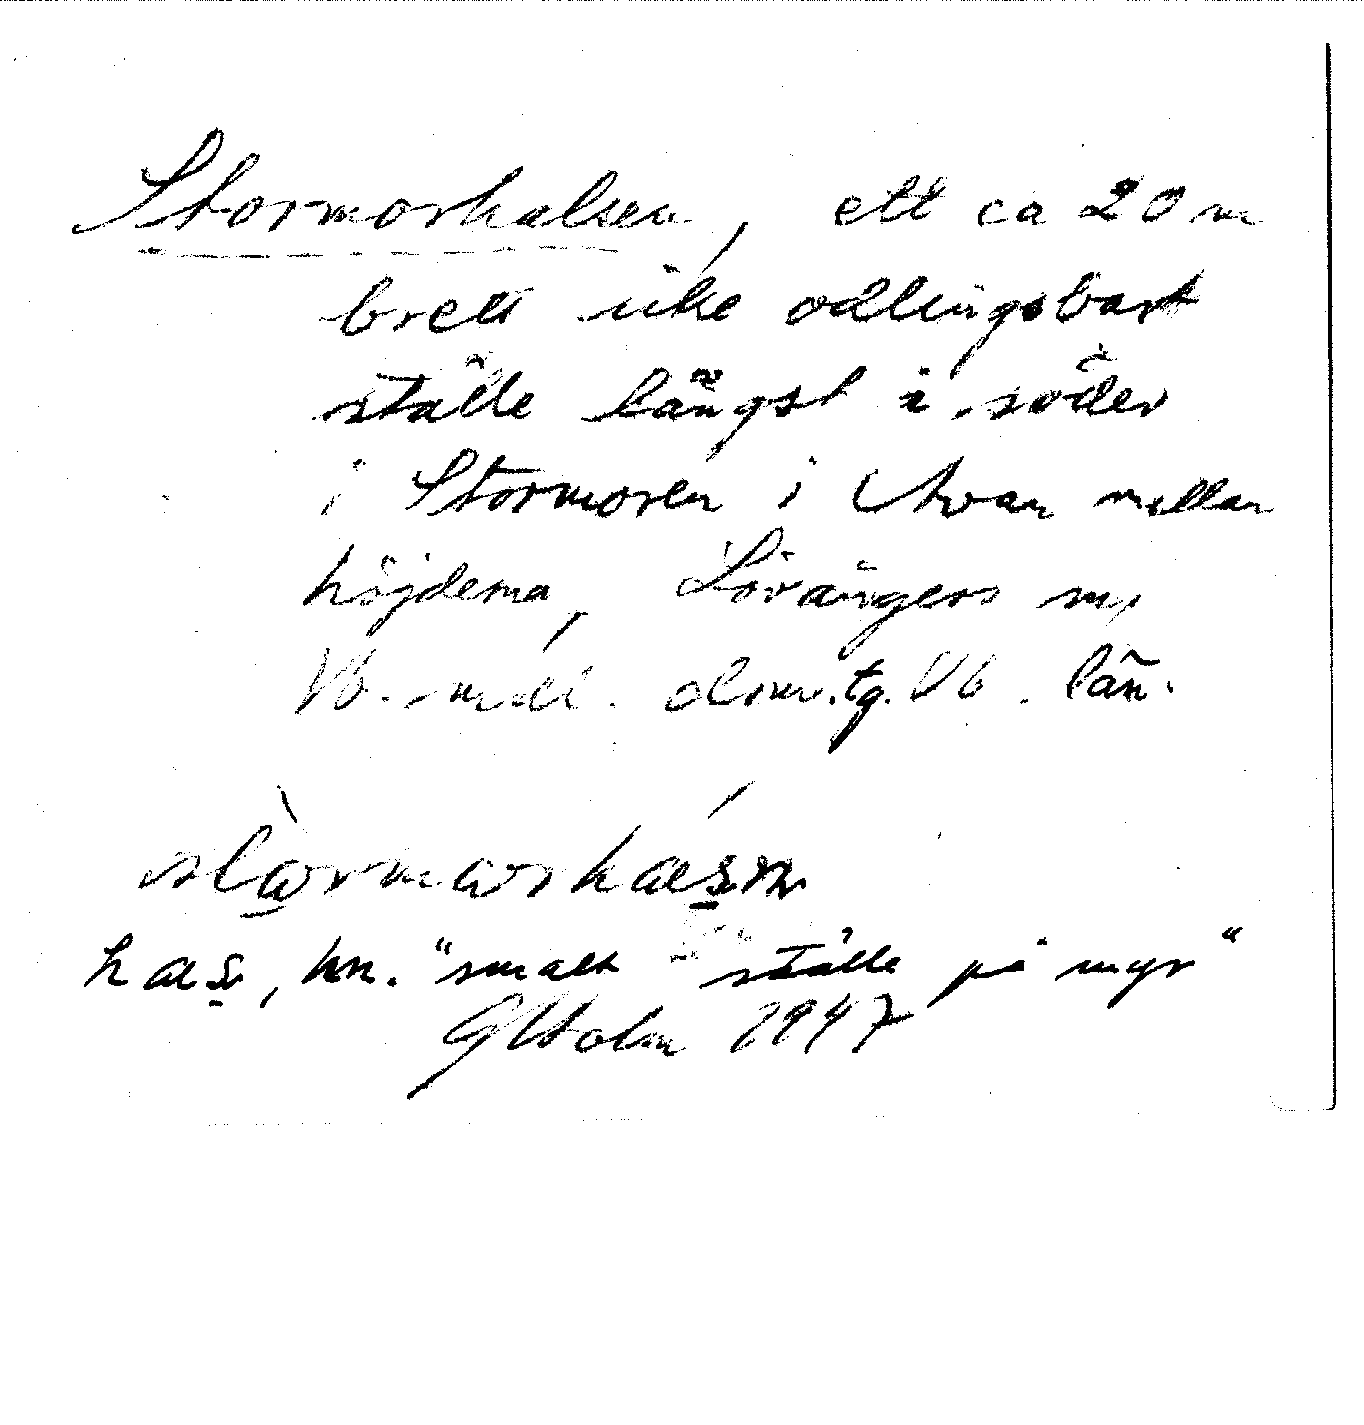 Stormorhalsen, ett ca 20 m
brett icke odlingsbart
ställe längst i söder
i Stormoren i Avan mellan
höjderna, Lövångers sn,
Vb. mell. doms.tg. Vb. län.
has, hn. "smalt ställe på myr"
GHolm 1947